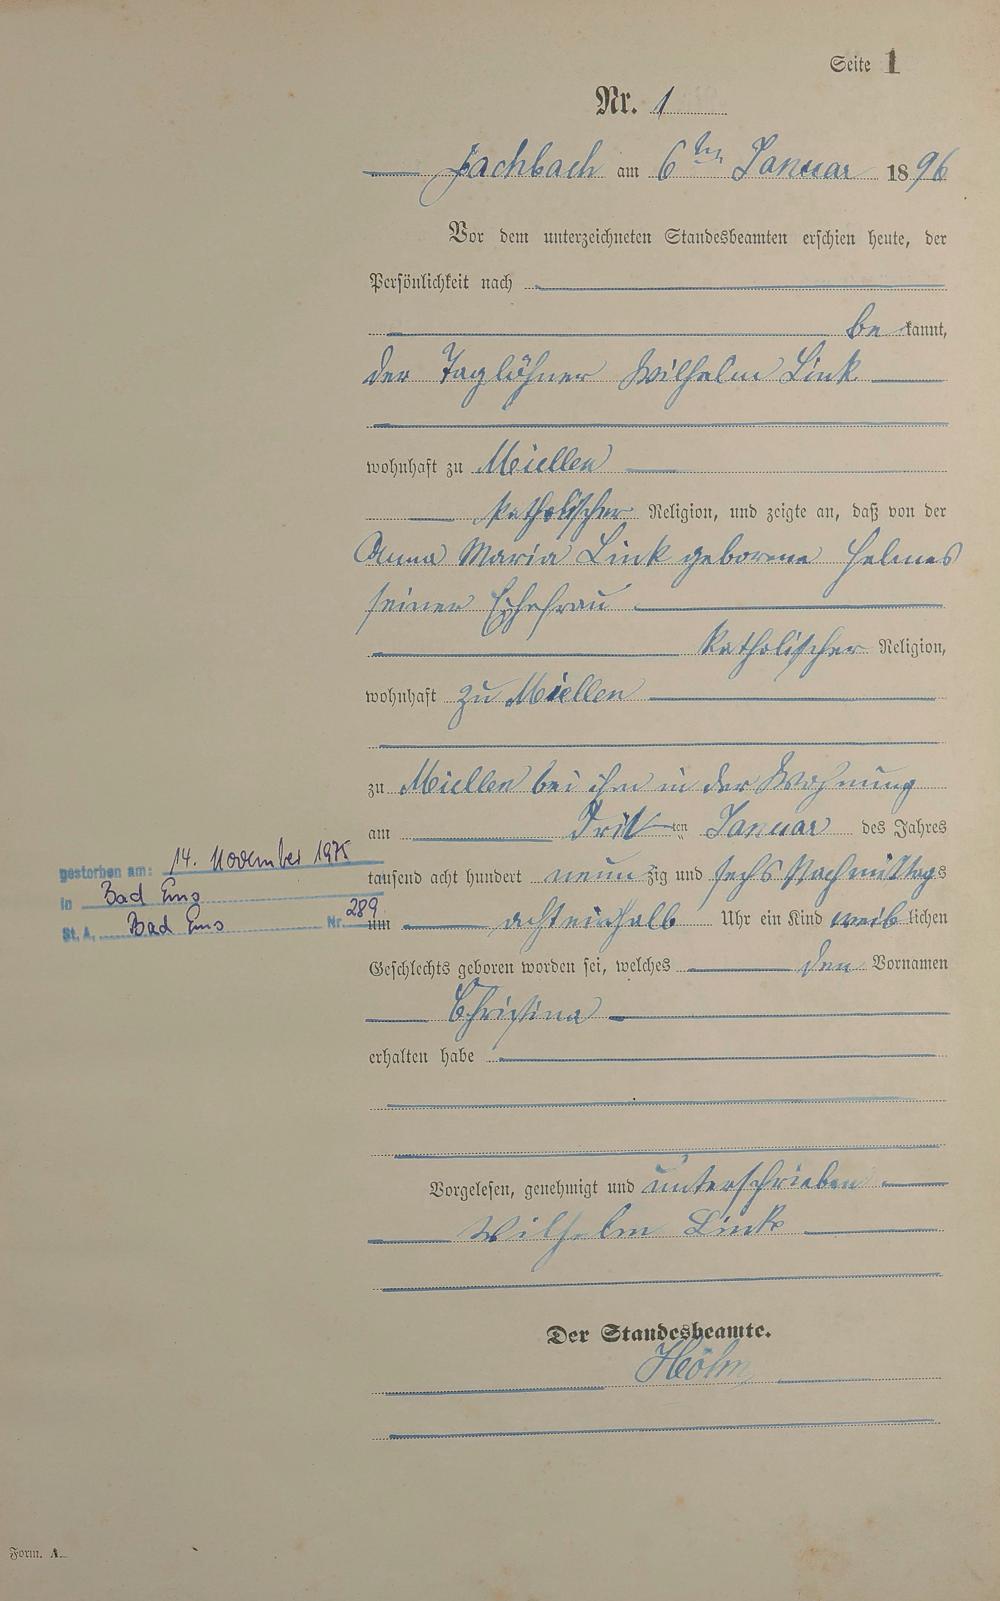 Seite 1
Nr. 1
Fachbach am 6ten Januar 1896
Vor dem unterzeichneten Standesbeamten erschien heute, der
Persönlichkeit nach
bekannt,
der Taglöhner Wilhelm Link
wohnhaft zu Miellen
katholischer Religion, und zeigte an, daß von der
Anna Maria Link geborene Helmes
seiner Ehefrau
katholischer Religion,
wohnhaft zu Miellen
zu Miellen bei ihm in der Wohnung
am Dritten Januar des Jahres
tausend acht hundert neunzig und sechs Nachmittags
um achteinhalb Uhr ein Kind weiblichen
Geschlechts geboren worden sei, welches den Vornamen
Christina
erhalten habe
Vorgelesen, genehmigt und unterschrieben
Wilhelm Link
Der Standesbeamte.
gestorben am: 14. November 1975
in Bad Ems
St. A. Bad Ems Nr. 289
Form. A.